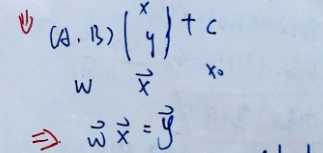 ⇓ (A, B) (x y) + C
w x⃗ x₀
⇒ w⃗ x⃗ = y⃗